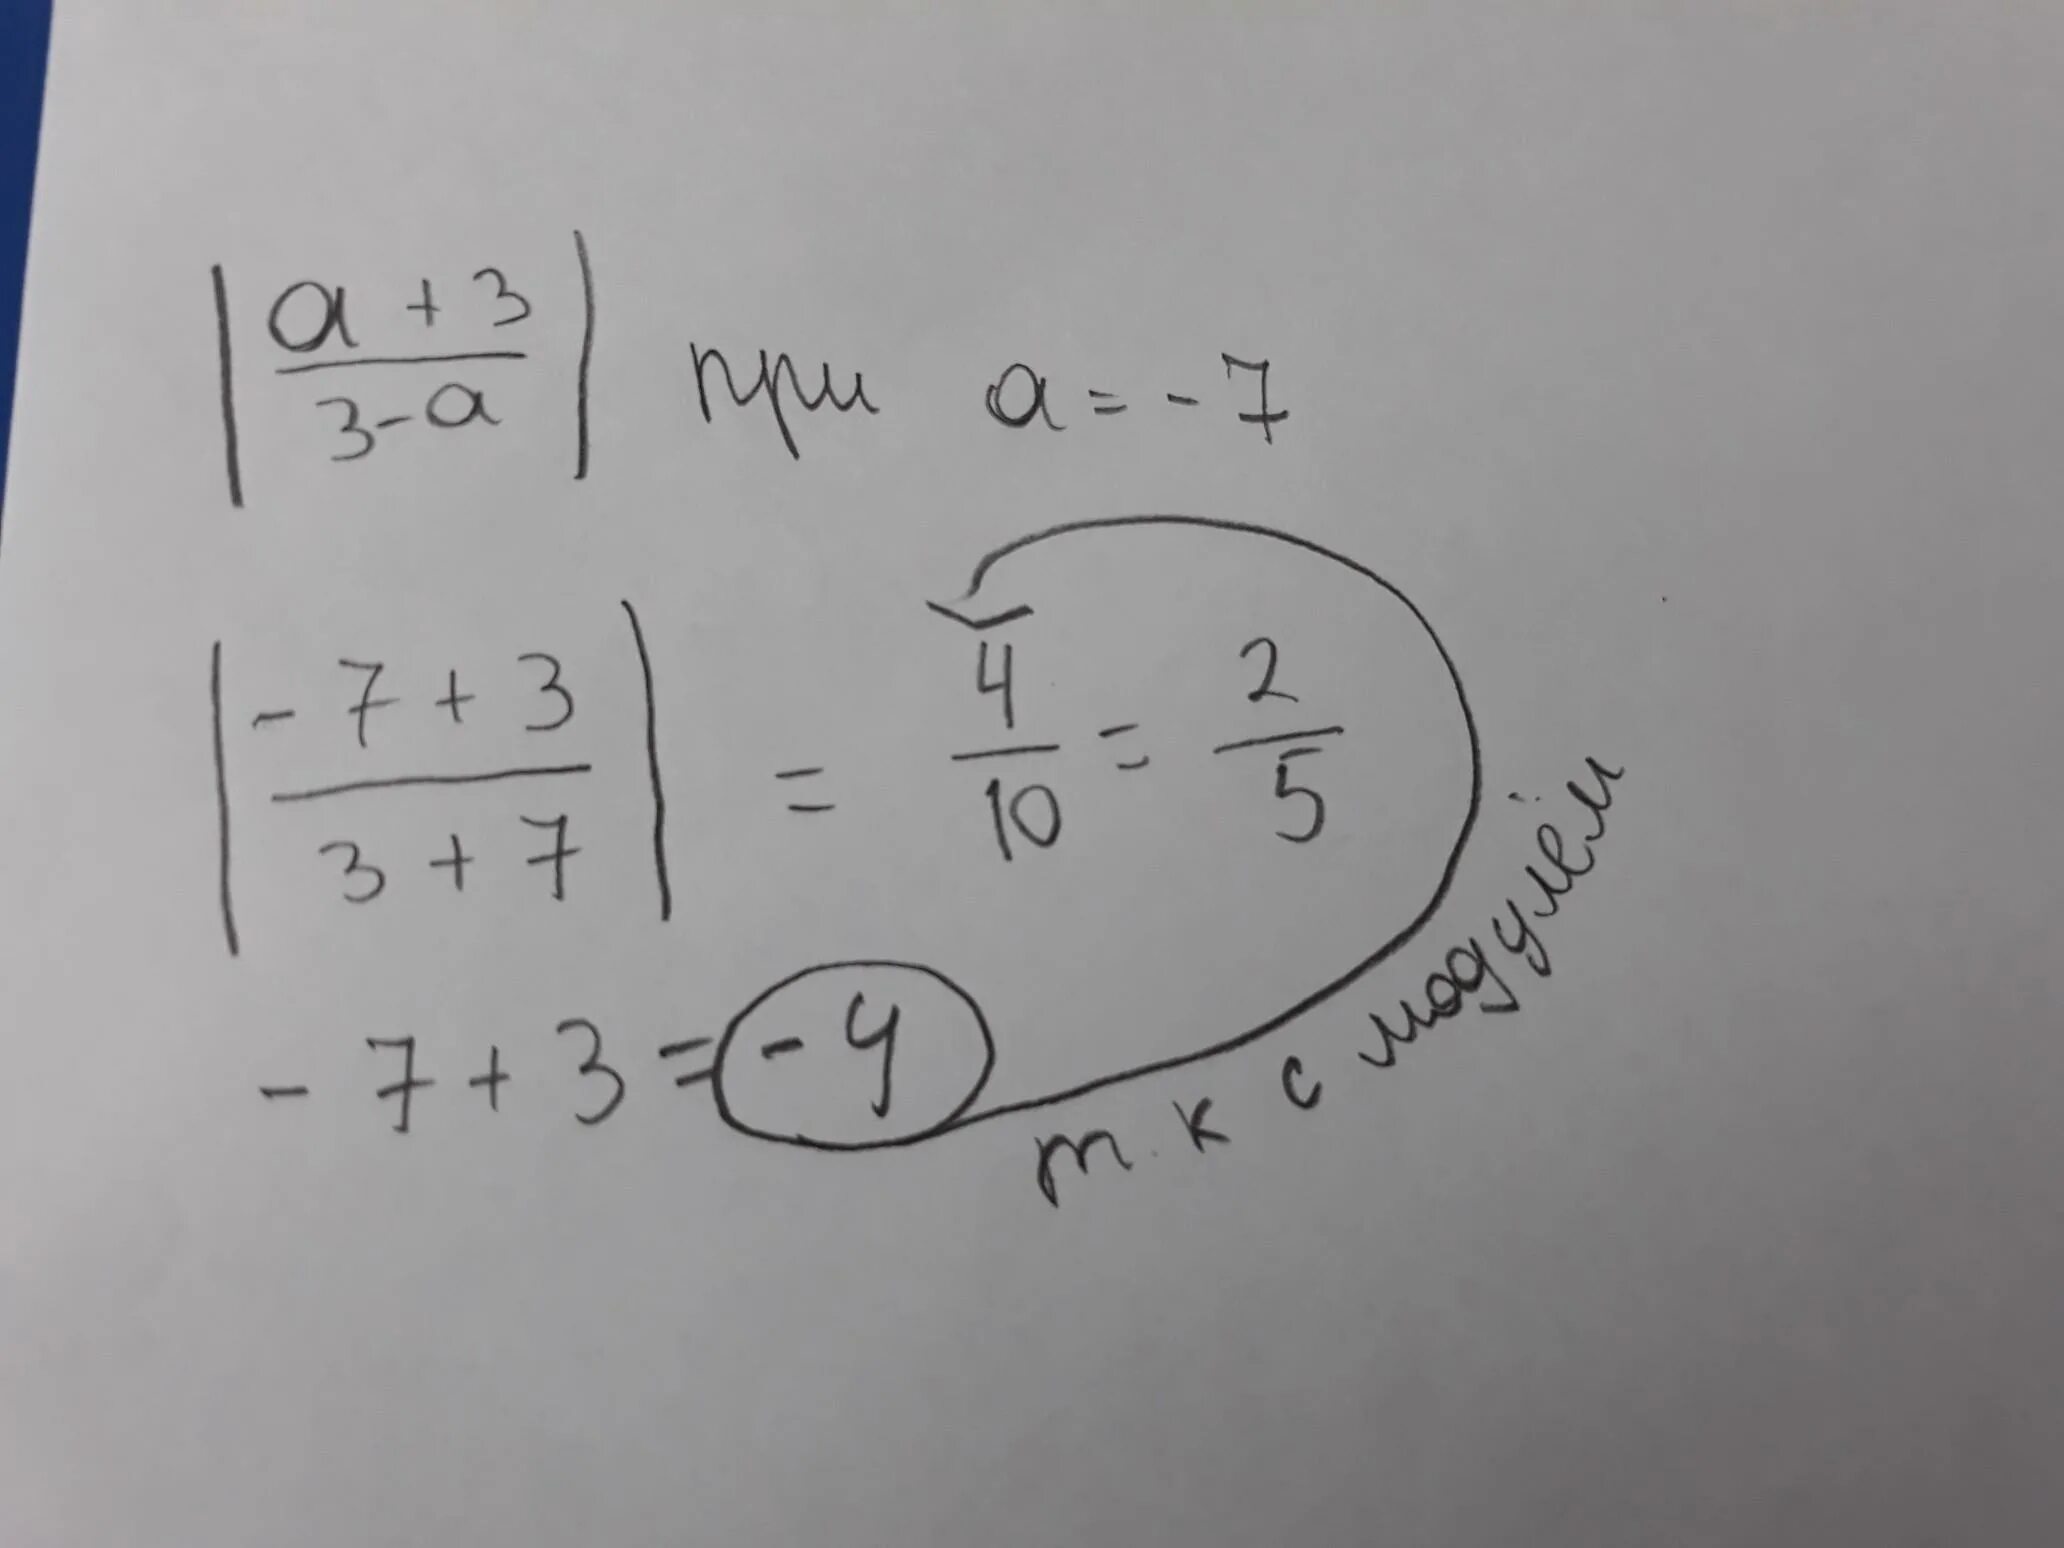 |a + 3 / 3 - a| при a = - 7
|- 7 + 3 / 3 + 7| = 4/10 = 2/5
- 7 + 3 = - 4
т.к с модулём